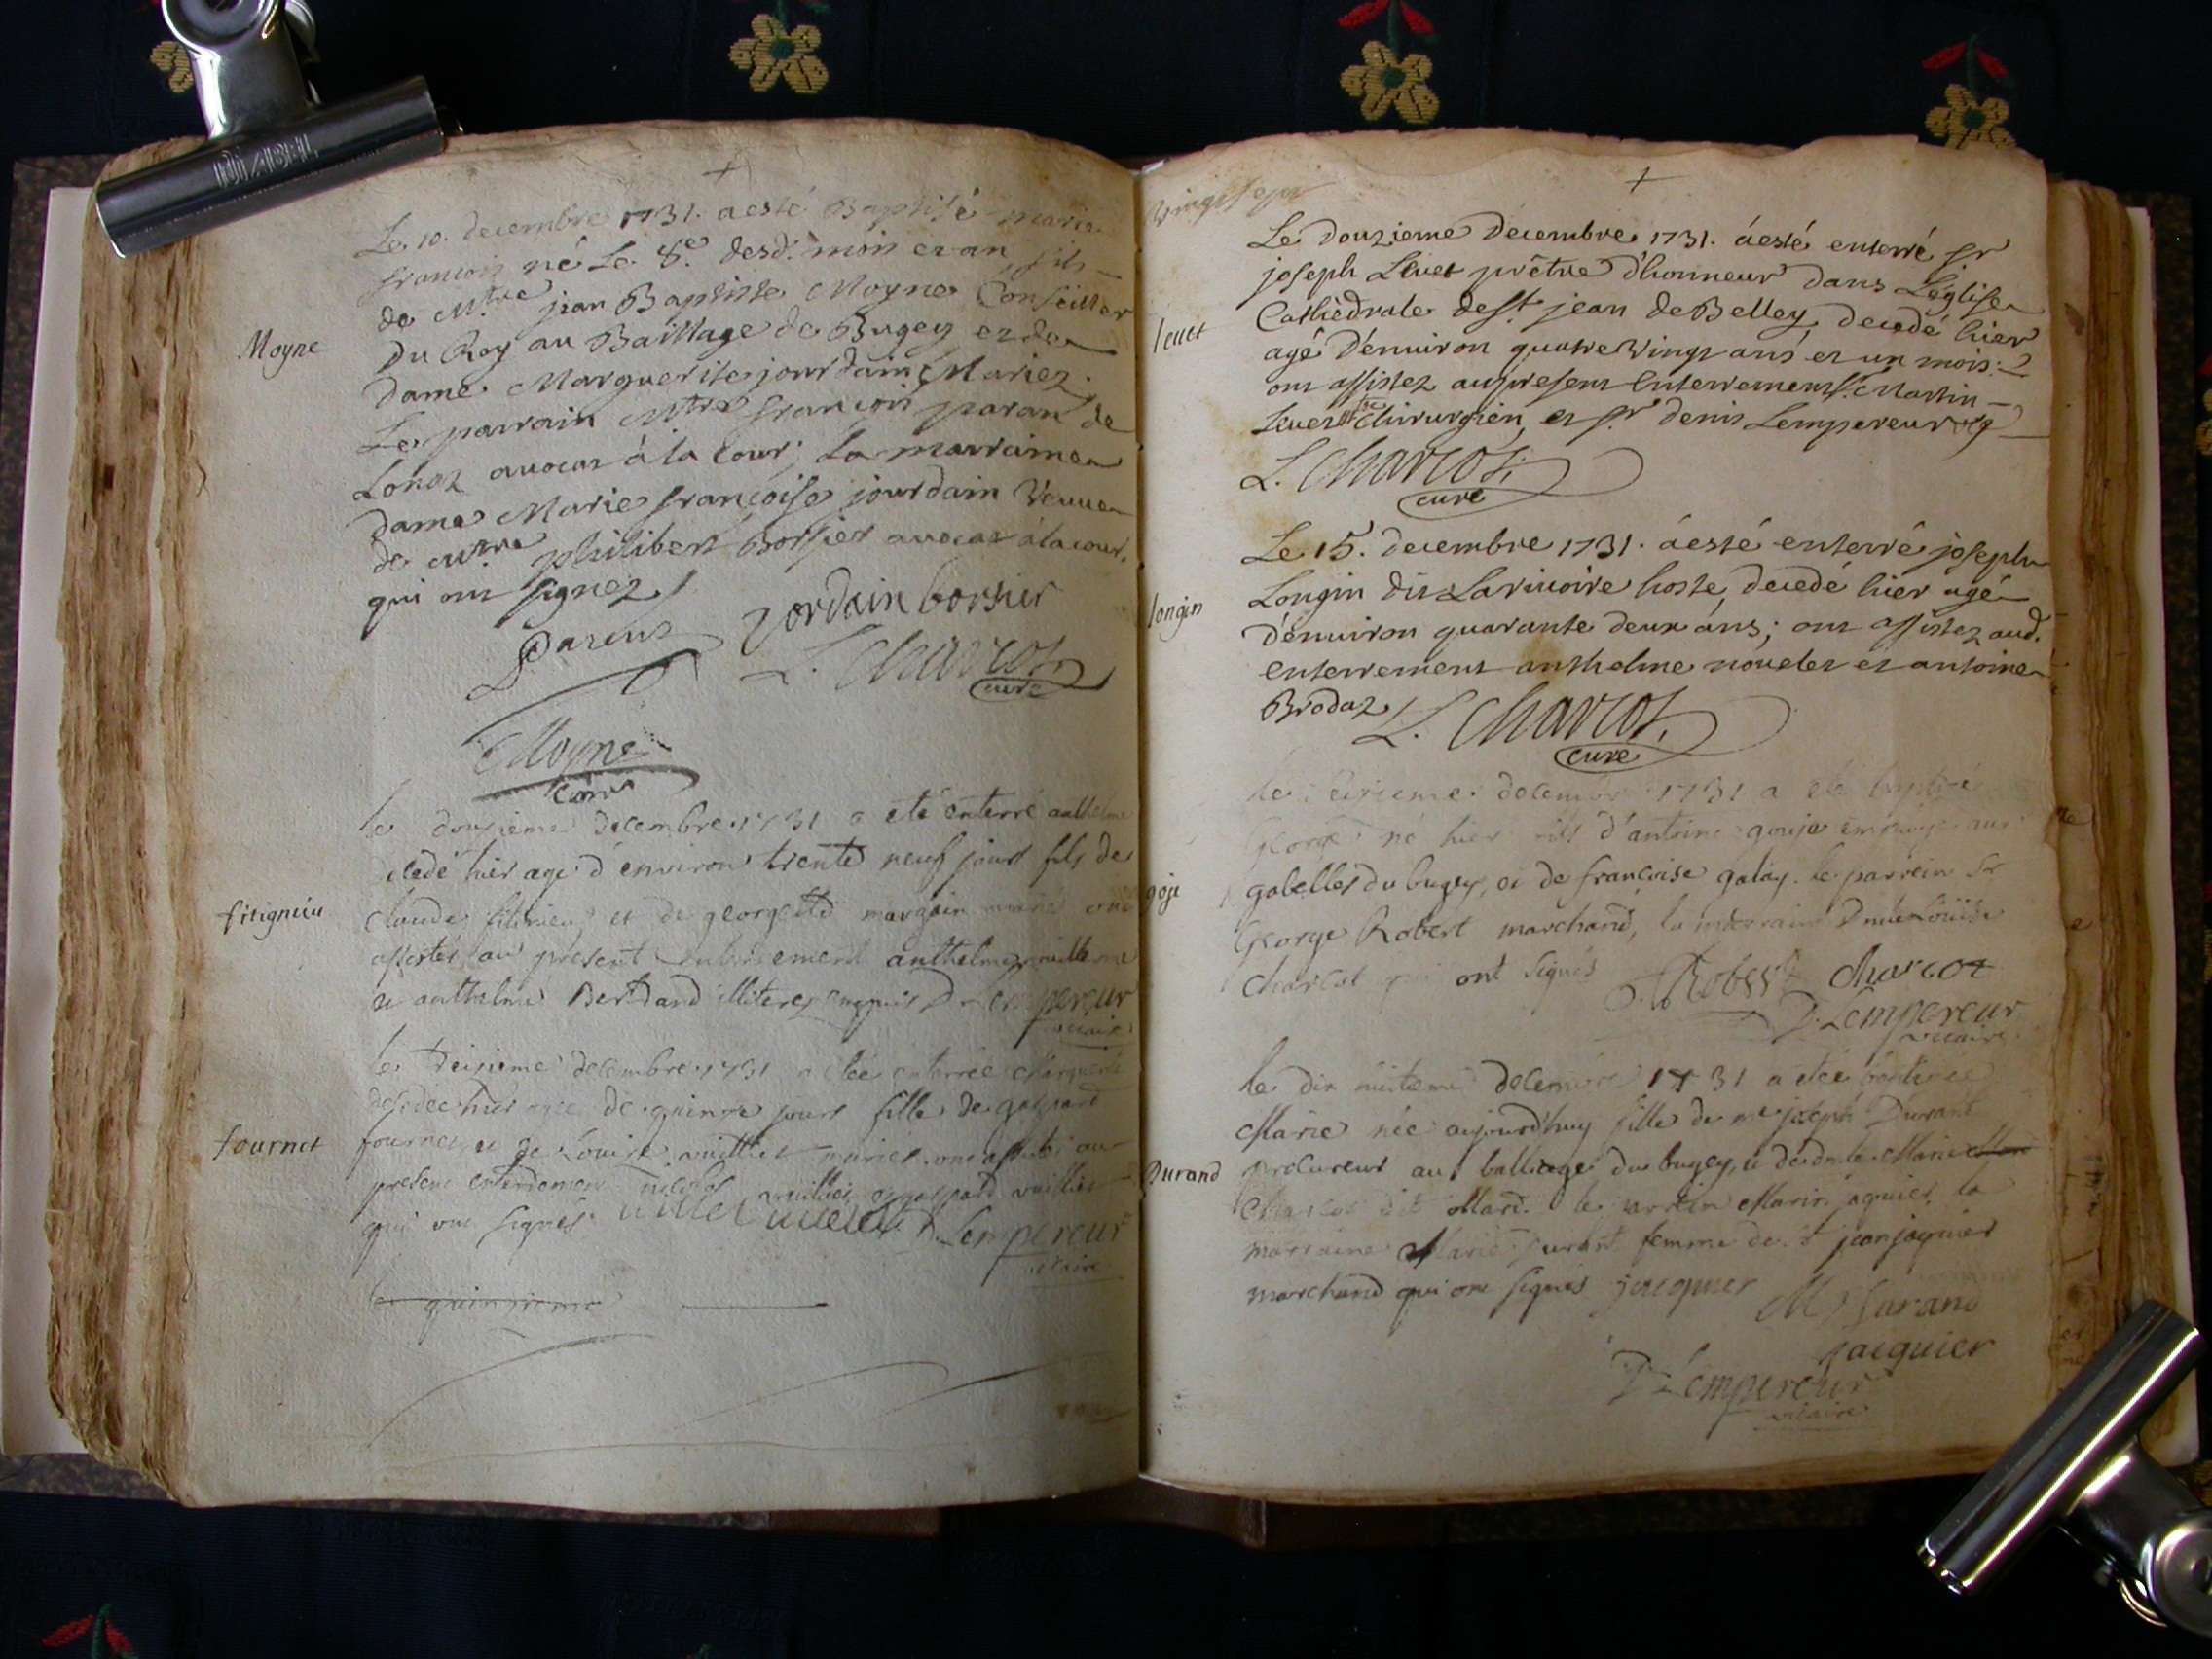 DIABEL
Le 10. decembre 1731. a esté Baptisé marie
francois né Le 8.e desd. mois et an, fils
de M.tre jean Baptiste Moyne Conseiller
Moyne
Du Roy au Baillage de Bugey et de
Dame Marguerite jourdain Mariez.
Le parrain M.tre françois paran de
Lonoz avocat à la Cour; La marraine
Dame Marie françoise jourdain Veuve
de M.tre philibert Borsier avocat à la cour,
qui ont signez
Parent Jordain borsier
L. Charcot
curé
Moyne
le douzieme decembre 1731 a eté enterré anthelme
decedé hier agé d'environ trente neuf jours fils de
fitignieu
claude et de georgette mariés ont
assistés au present enterrement anthelme
et anthelme Bertrand illiteres enquis D. Lempereur
vicaire
le treizieme decembre 1731 a eteé enterrée
decedée hier agée de quinze jours fille de gaspard
fournet
fournet et de Louise mariés ont assistés au
present enterrement et gaspard
qui ont signés D. Lempereur
vicaire
le quinzieme
vingt sept
Le Douzieme Decembre 1731. à esté enterré sr
joseph Levet prêtre d'honneur dans L'église
Cathedrale de st. jean de Belley, decedé hier
levet
agé D'environ quatre Vingt ans et un mois:
ont assistez au present Enterrement sr. Martin
Levet M.tre Chirurgien, et sr. denis Lempereur
L. Charcot,
curé
Le 15. decembre 1731. à esté enterré joseph
Longin dit Larivoire hoste, decedé hier agé
longin
D'environ quarante deux àns; ont assistez aud.
enterrement anthelme nouelet et antoine
Brodaz
L. Charcot,
curé
le decembre 1731 a eté baptisé
George né hier fils d'antoine goujе employé aux
goje
gabelles du bugey, et de francoise galay. le parrein Sr
George Robert marchand, la marraine Dmlle Louise
Charcot qui ont signés Robert Charcot
D. Lempereur
vicaire
le dix huitieme decembre 1731 a eteé batisée
Marie neé aujourd'huy fille de me joseph Durand
Durand
procureur au balliage du bugey, et de dmle Marie
Charcot dit Mard. le parrein Marin jaquier la
marraine Marie Durand femme de sr jean jaquier
marchand qui ont signés jacquier M Durand
jacquier
D. Lempereur
vicaire